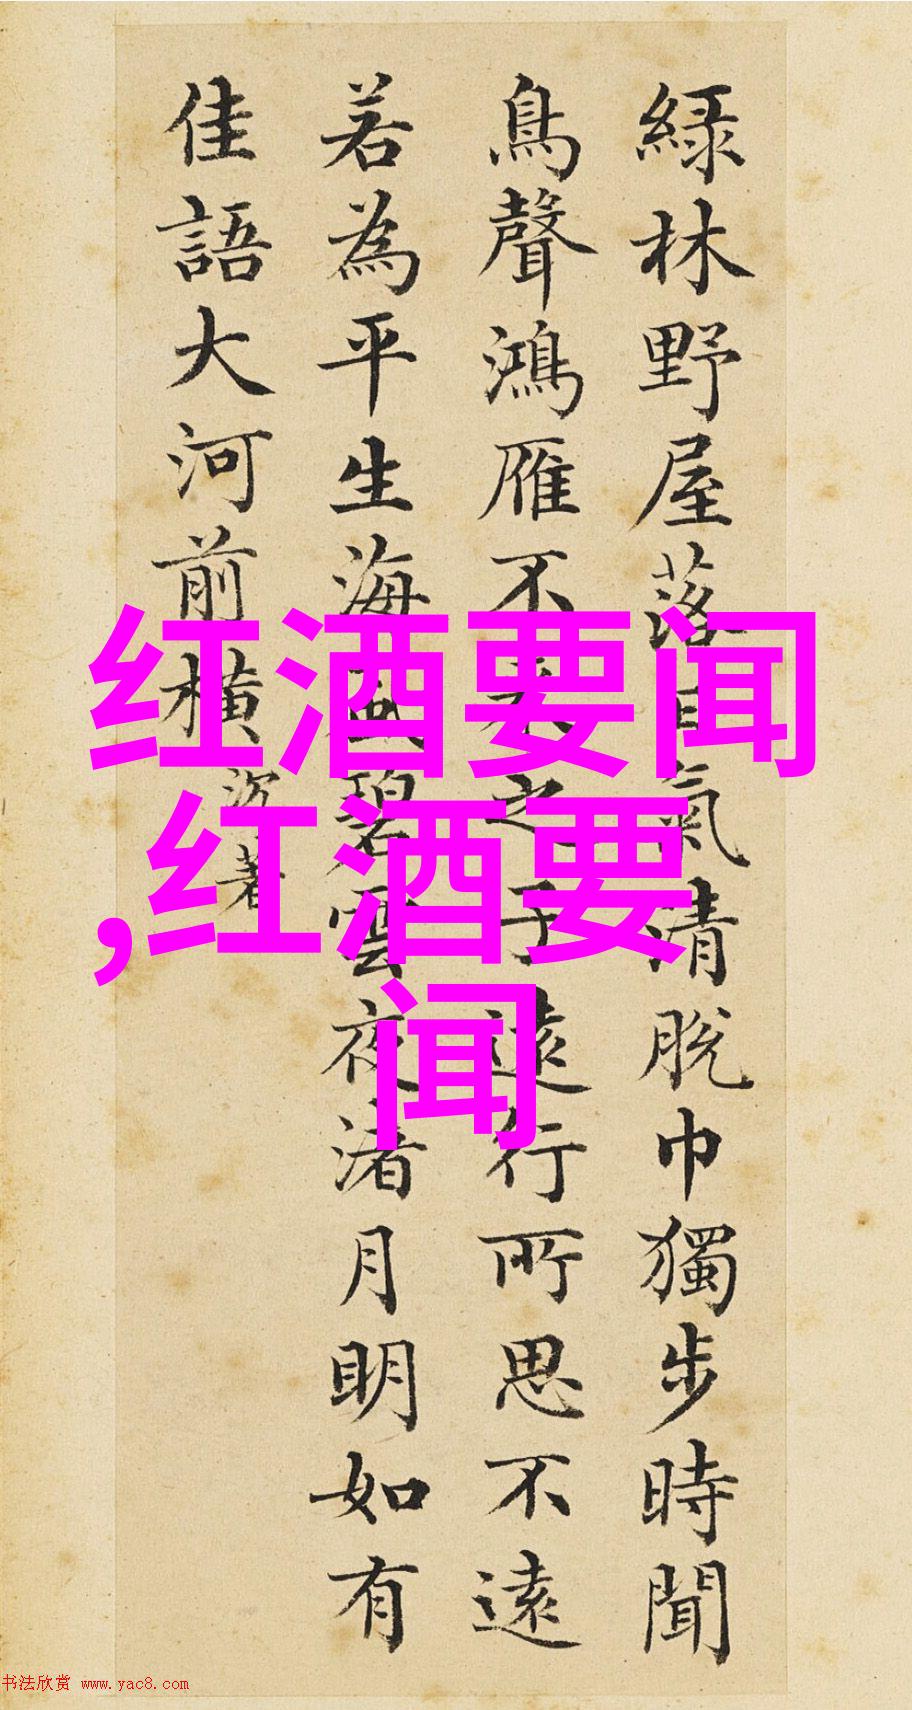 綠林野屋落日氣清脫巾獨步時聞
鳥聲鴻雁不來之子遠行所思不遠
若為平生海風碧雲夜渚月明如有
佳語大河前橫 沈著
红酒要闻
,红酒要
闻
书法欣赏 www.yac8.com